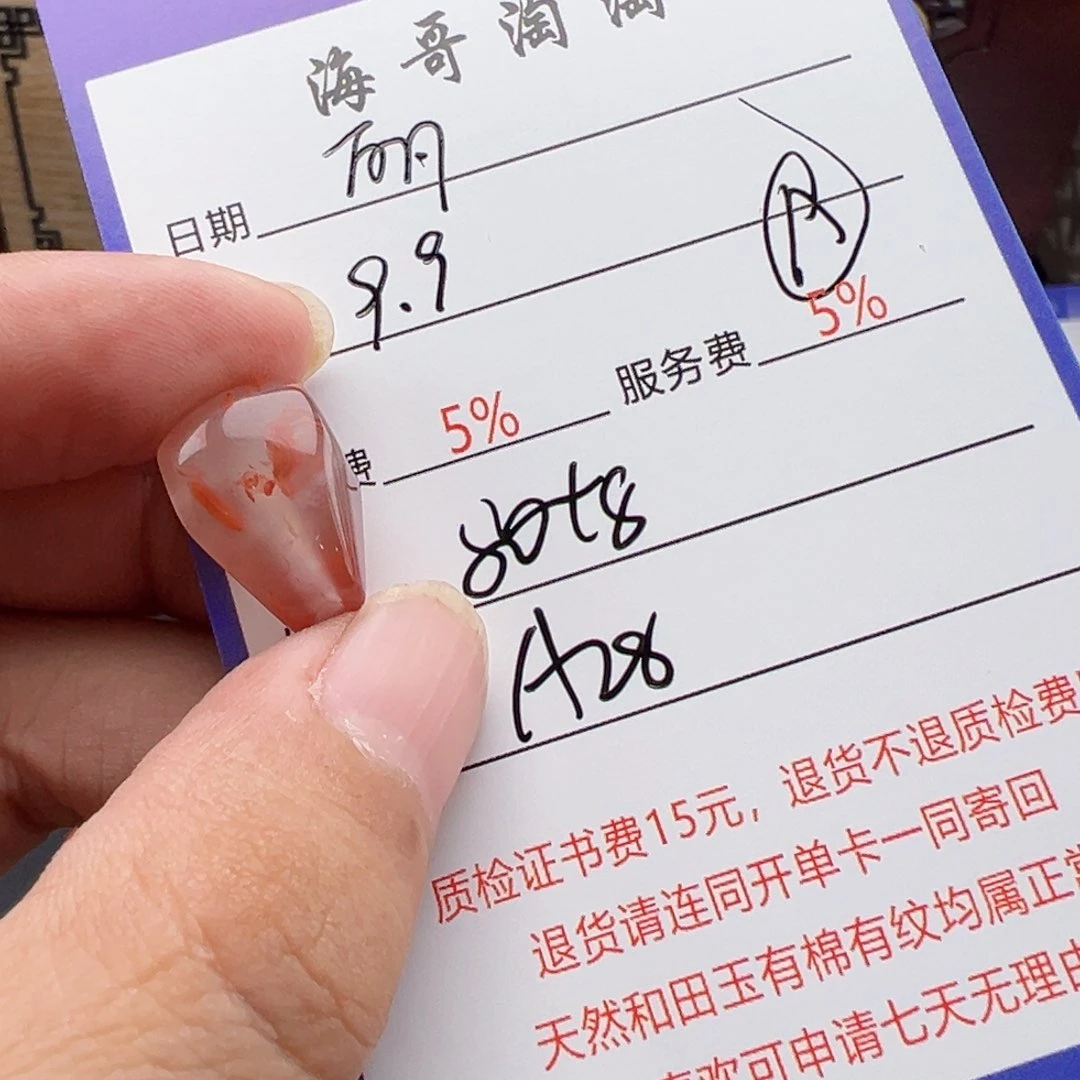 海哥淘淘
日期
9.9 A
费 5% 服务费 5%
80+8
A28
质检证书费15元，退货不退质检费
退货请连同开单卡一同寄回
天然和田玉有棉有纹均属正常
喜欢可申请七天无理由